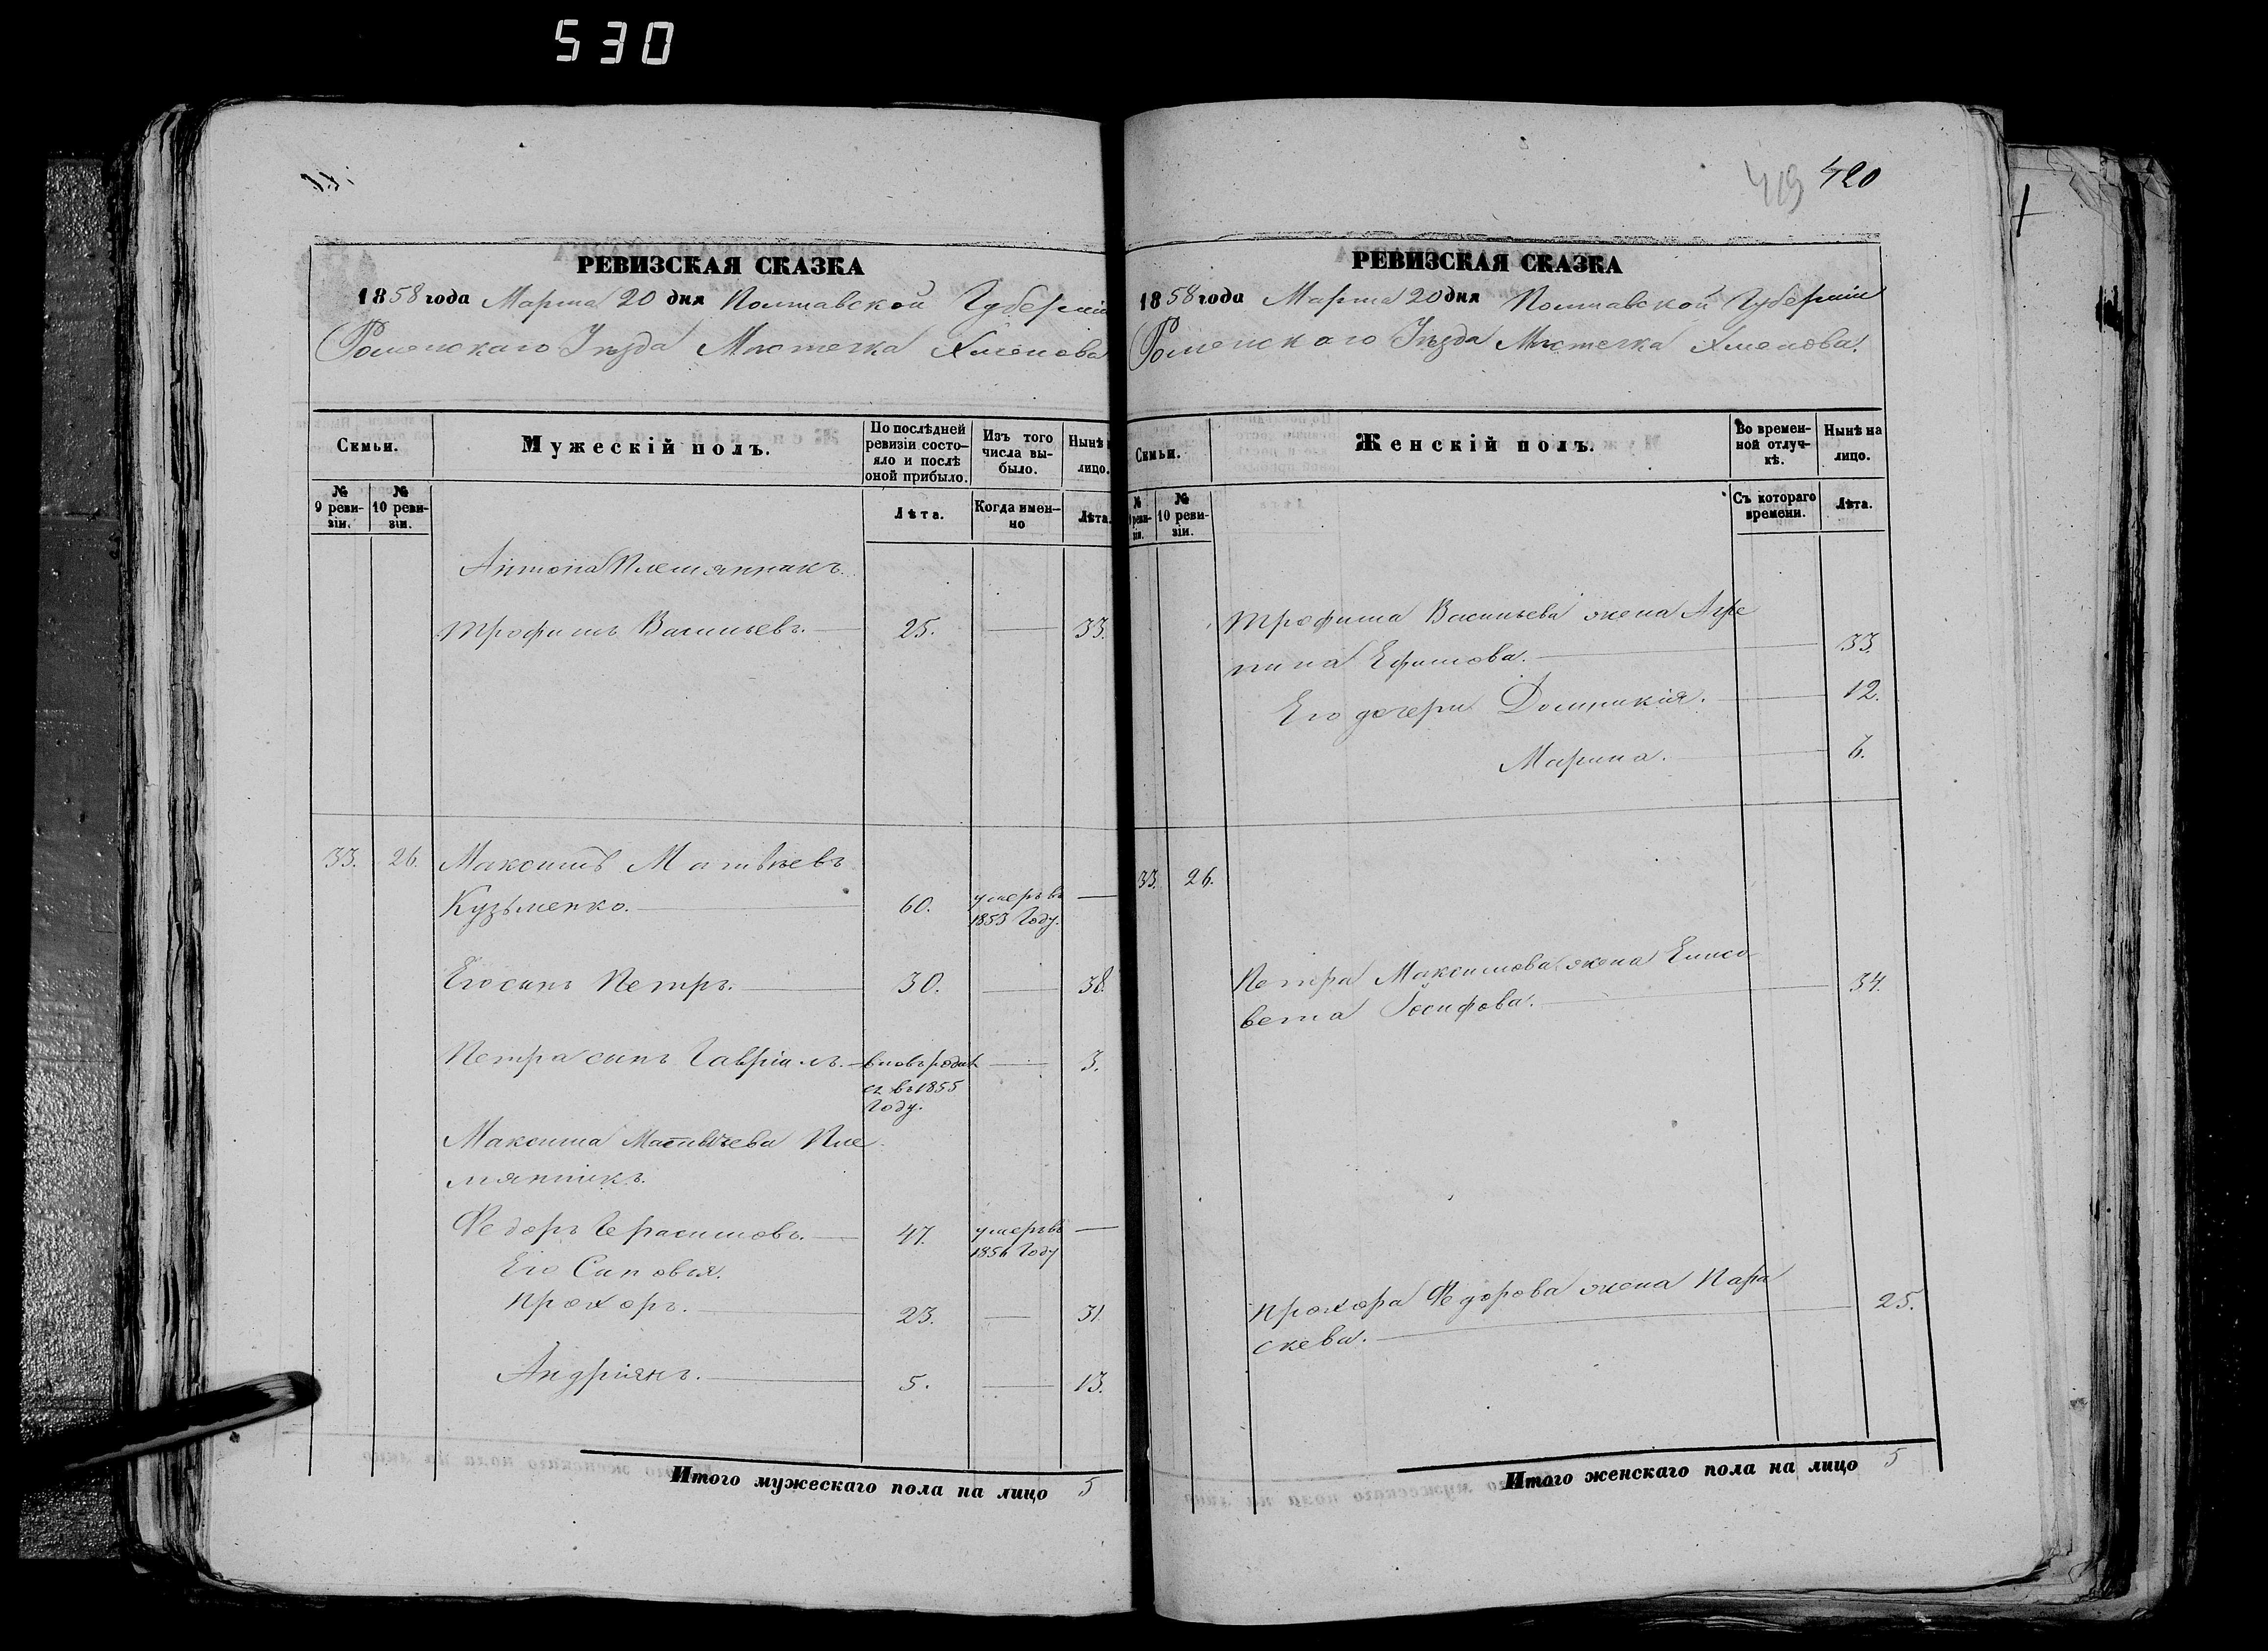 530
РЕВИЗСКАЯ СКАЗКА
1858 года Марта 20 дня Полтавской Губерніи
Роменскаго Уѣзда Мѣстечка Хмелова
Семьи.
Мужескій полъ.
По послѣдней ревизіи состо-
яло и послѣ
оной прибыло.
Изъ того
числа вы-
было.
Нынѣ
лицо.
№
9 реви-
зіи.
№
10 реви-
зіи.
Лѣта.
Когда имен-
но
Лѣта.
Антона Племянникъ
Трофимъ Васильевъ. 25. 33.
33. 26. Максимъ Матвѣевъ
Кузьменко. 60. умеръ въ
1853 Году.
Его сынъ Петръ. 30. 38.
Петра сынъ Гавріилъ. вновь родил
ся въ 1855
Году. 3.
Максима Матвѣева Пле
мянникъ.
Федоръ Герасимовъ. 47. умеръ въ
1856 Году
Его Сыновья.
Прохоръ. 23. 31
Андріянъ. 5. 13.
Итого мужескаго пола на лицо 5
419 420
РЕВИЗСКАЯ СКАЗКА
1858 года Марта 20 дня Полтавской Губерніи
Роменскаго Уѣзда Мѣстечка Хмелова.
Семьи.
Женскій полъ.
Во времен-
ной отлуч-
кѣ.
Нынѣ на
лицо.
№
9 реви-
зіи.
№
10 реви-
зіи.
Съ котораго
времени.
Лѣта.
Трофима Васильева жена Агре
пина Ефимова. 33.
Его дочери Домникія. 12.
Марина. 6.
33. 26.
Петра Максимова жена Елиса
вета Іосифова. 34.
Прохора Федорова жена Пара
скева. 25.
Итого женскаго пола на лицо 5